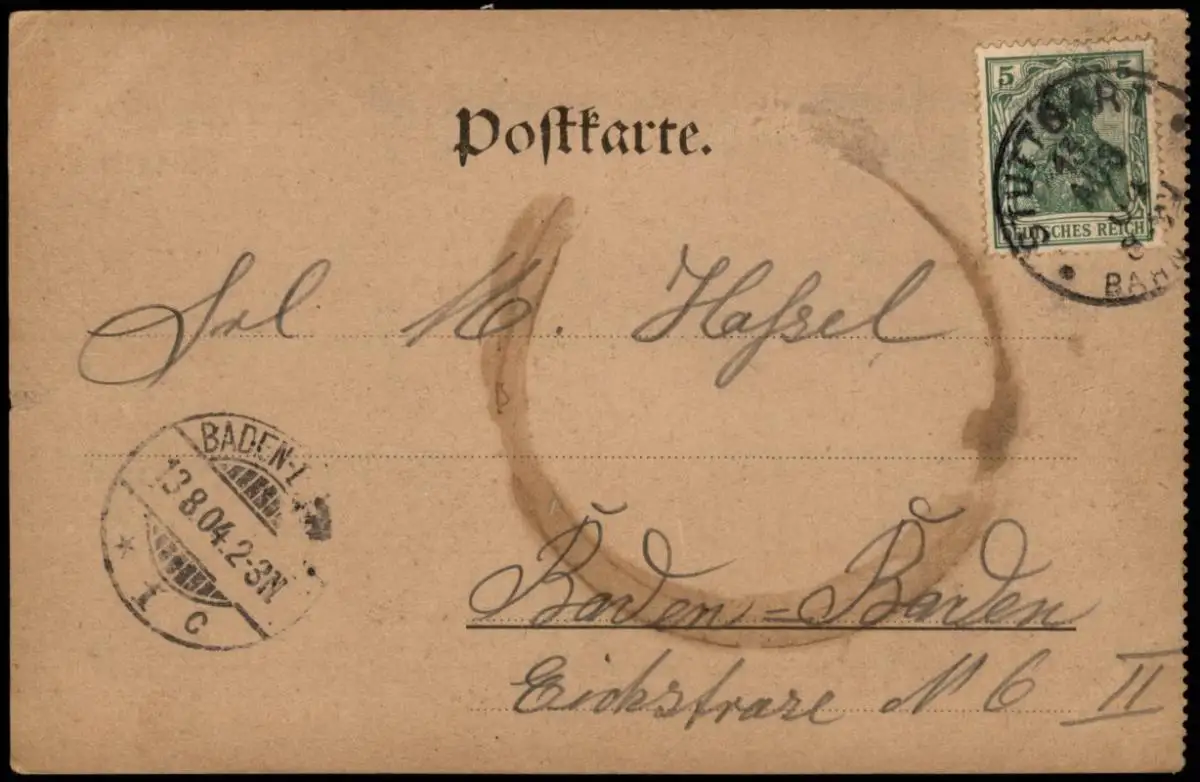 Postkarte.
5 5
DEUTSCHES REICH
STUTTGART
13
BAH
Frl M. Hassel
BADEN-
13.8.04.2-3N
* 1 c
Baden=Baden
Eichstrase N 6 II